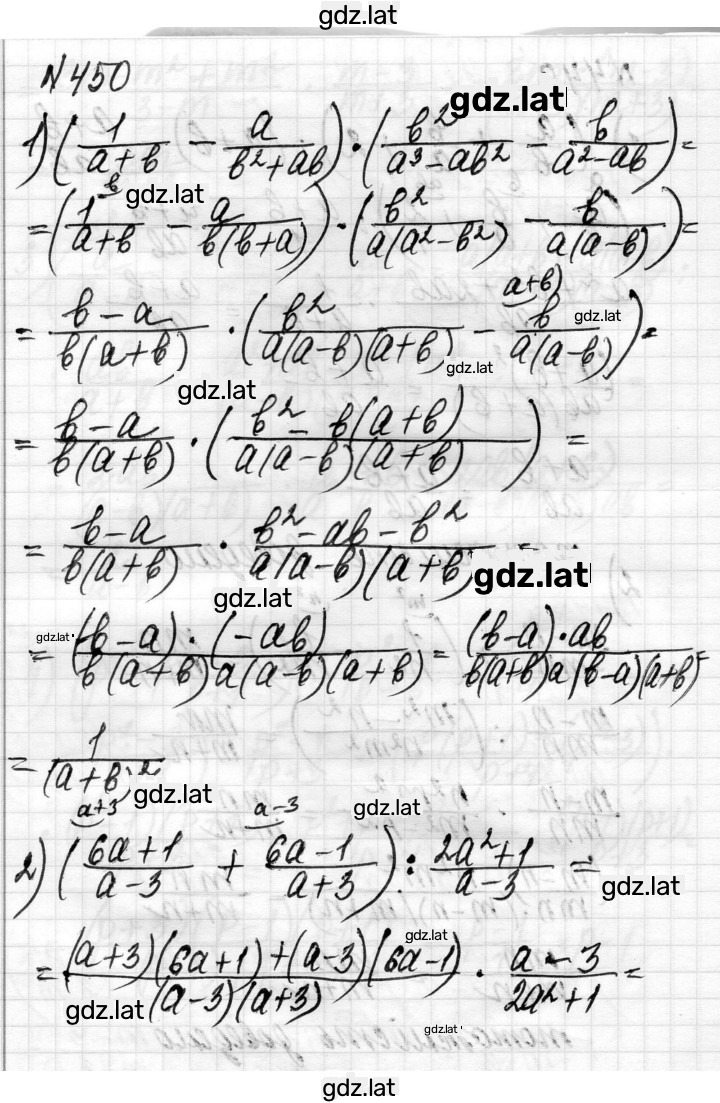 gdz.lat
N 450
gdz.lat
1) (1/(a+b) - a/(b²+ab)) · (b²/(a³-ab²) - b/(a²-ab)) =
gdz.lat
= (1^b/(a+b) - a/(b(b+a))) · (b²/(a(a²-b²)) - b/(a(a-b))) =
a+b)
= (b-a)/(b(a+b)) · (b²/(a(a-b)(a+b)) - b/(a(a-b))) =
gdz.lat
gdz.lat
gdz.lat
= (b-a)/(b(a+b)) · ((b² - b(a+b))/(a(a-b)(a+b))) =
= (b-a)/(b(a+b)) · (b²-ab-b²)/(a(a-b)(a+b)) =
gdz.lat
gdz.lat
gdz.lat
= ((b-a)·(-ab))/(b(a+b)a(a-b)(a+b)) = ((b-a)·ab)/(b(a+b)a(b-a)(a+b)) =
= 1/(a+b)²
gdz.lat
gdz.lat
a+3 a-3
2) ((6a+1)/(a-3) + (6a-1)/(a+3)) : (2a²+1)/(a-3) =
gdz.lat
gdz.lat
= ((a+3)(6a+1)+(a-3)(6a-1))/((a-3)(a+3)) · (a-3)/(2a²+1) =
gdz.lat
gdz.lat
gdz.lat